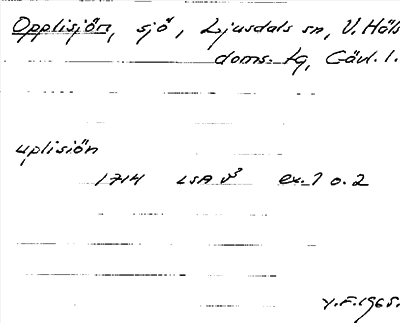 Opplisjön, sjö, Ljusdals sn, V. Häls
doms. tg, Gävl. l.
uplisiön
1714 LSA v³ ex. 1 o. 2
V.F. 1965.